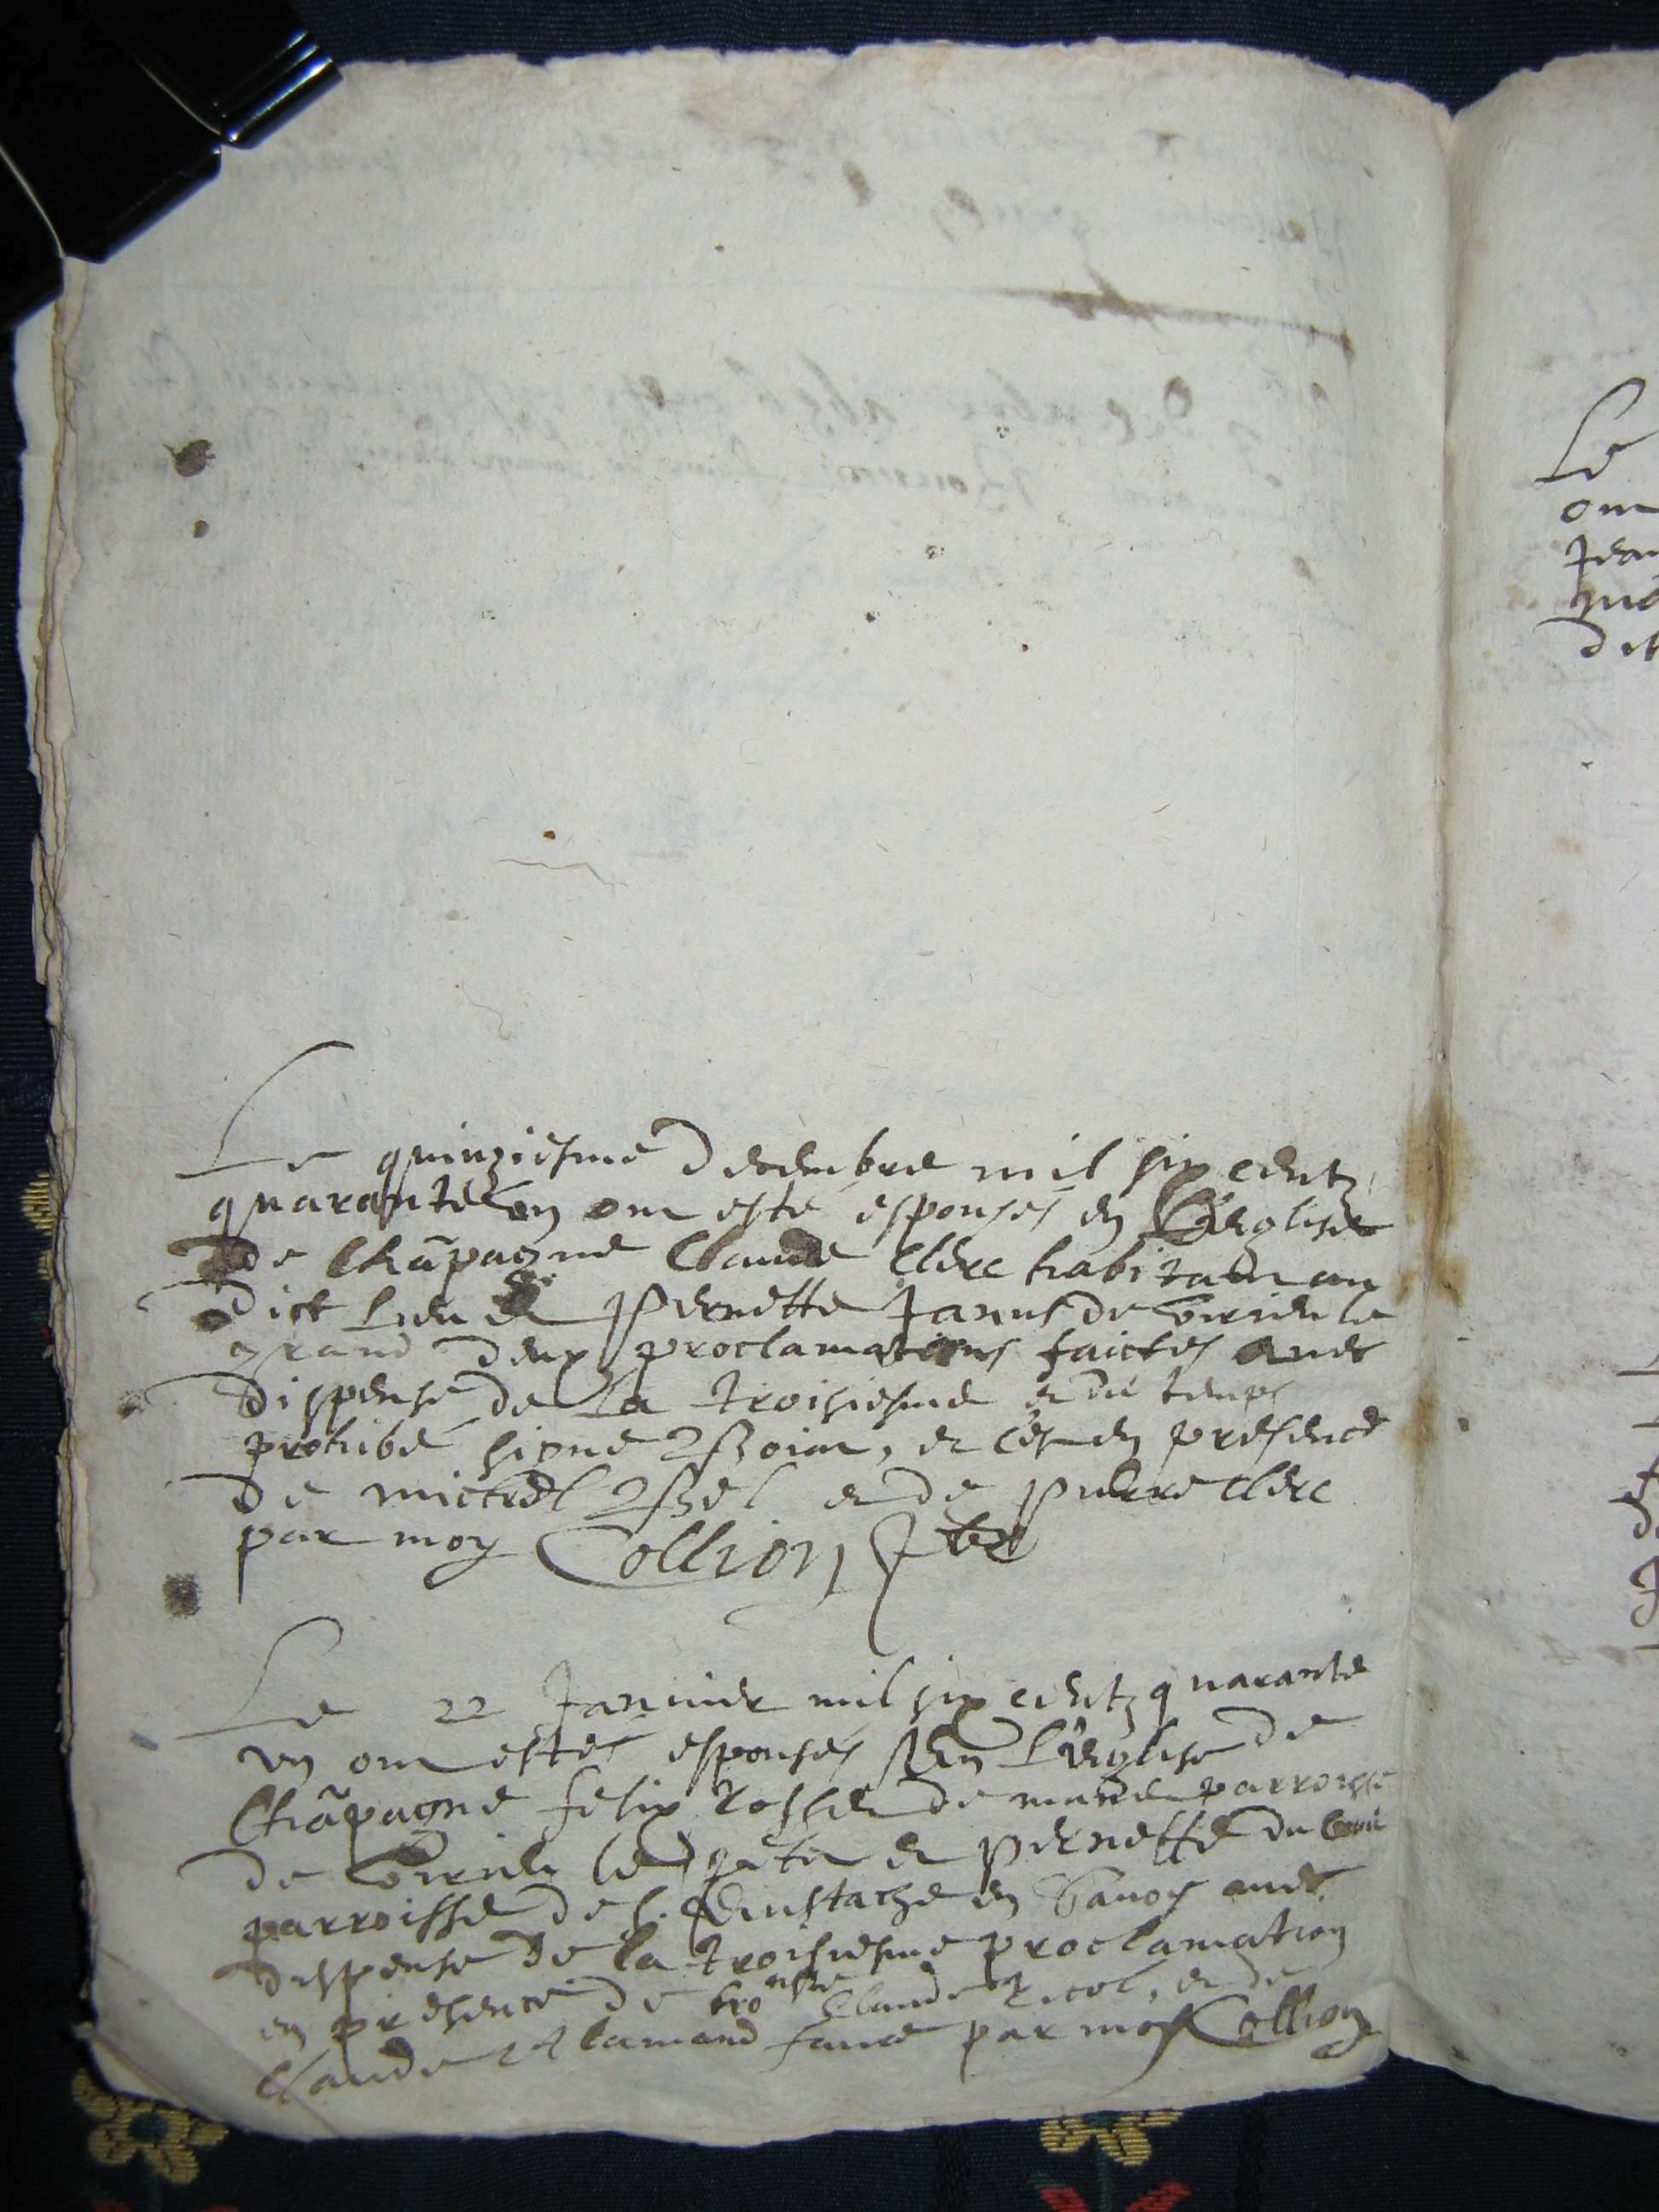 Le quinziesme decembre mil six centz
quarante un ont esté espousés en l'Eglise
de Chãpagne Claude Clerc habitant au
dict lieu et Pernette Janus de Virieu le
grand deux proclamations faictes avec
dispense de la troisiesme et du temps
prohibé signé, et c'est en presence
de michel et de Pierre Clerc
par moy Collion
Le 22 Janvier mil six centz quarante
un ont estés espousés en L'eglise de
Chãpagne felix Rosset de parroisse
de Virieu le petit et Pernette du
parroisse de S. Eustache en Savoy avec
dispense de la troisiesme proclamation
en presence de Claude, et de
Claude Alamand par moy Collion
Le
ont
Jean
dit